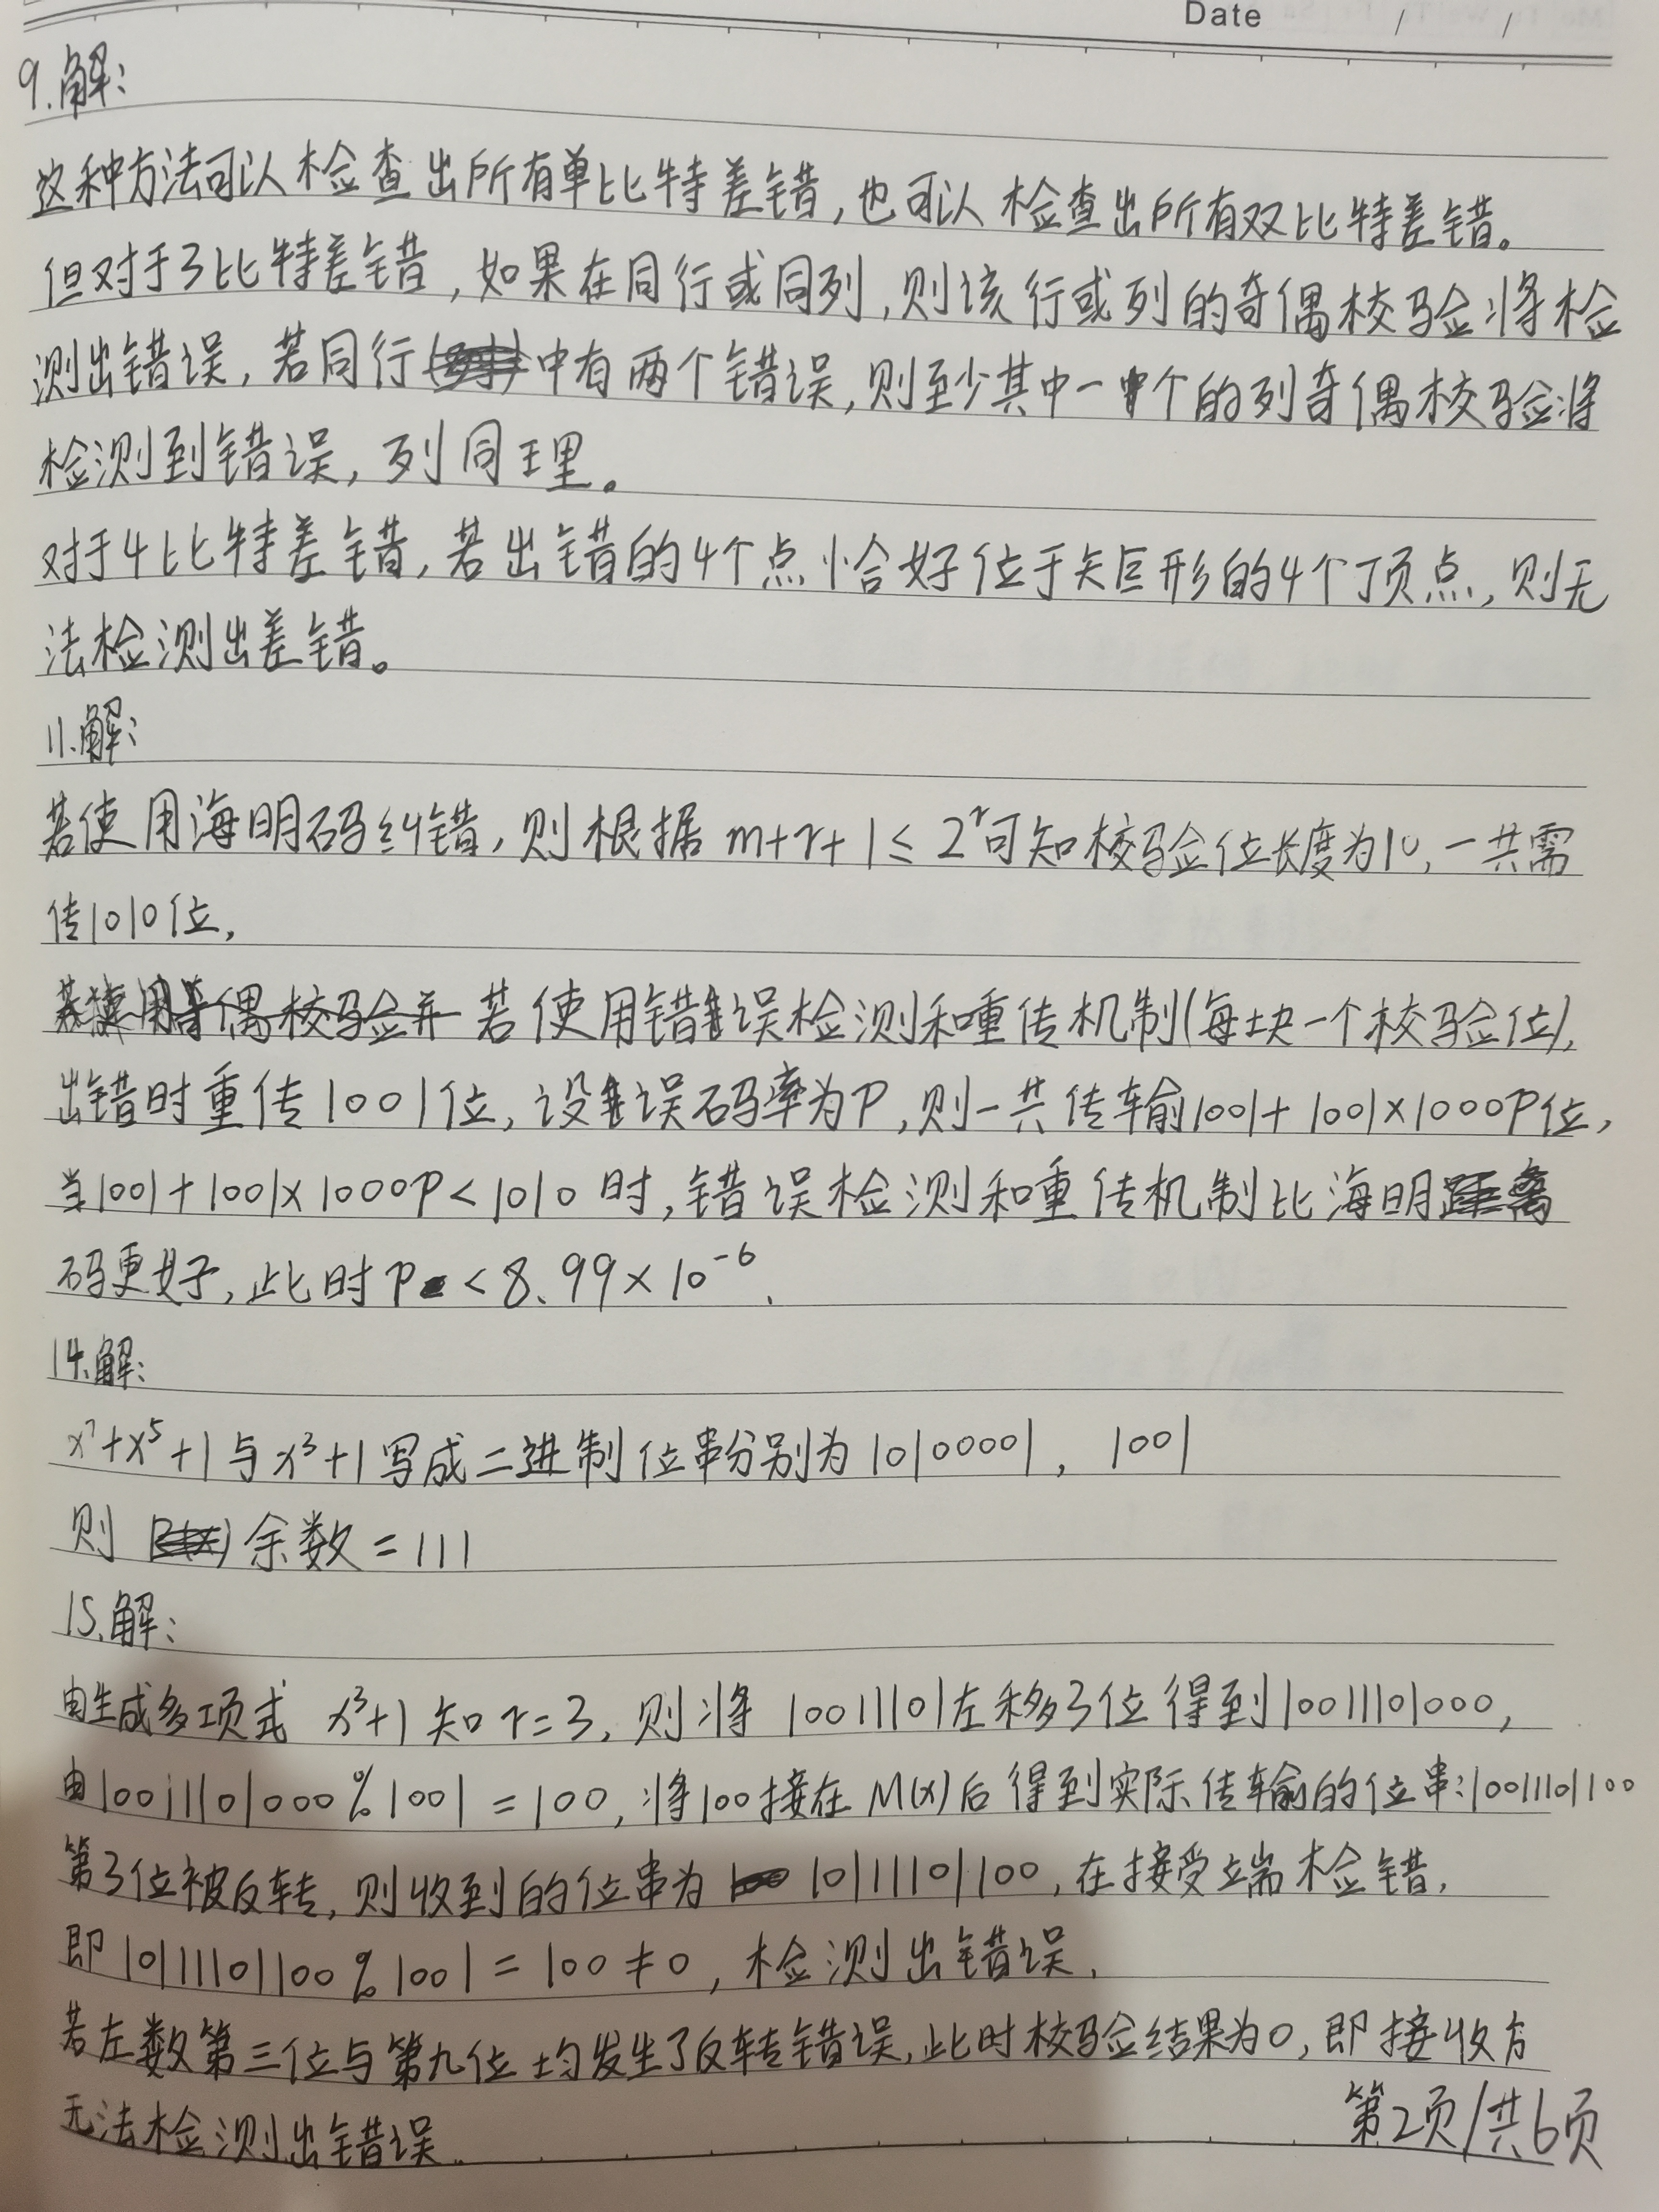 Date / /
9.解:
这种方法可以检查出所有单比特差错,也可以检查出所有双比特差错。
但对于3比特差错,如果在同行或同列,则该行或列的奇偶校验将检
测出错误,若同行中有两个错误,则至少其中一个的列奇偶校验将
检测到错误,列同理。
对于4比特差错,若出错的4个点恰好位于矩形的4个顶点,则无
法检测出差错。
11.解:
若使用海明码纠错,则根据 m+r+1≤2^r可知校验位长度为10,一共需
传1010位,
若使用错误检测和重传机制(每块一个校验位),
出错时重传1001位,设误码率为P,则一共传输1001+1001×1000P位,
当1001+1001×1000P<1010时,错误检测和重传机制比海明
码更好,此时P<8.99×10^-6.
14.解:
x^7+x^5+1与x^3+1写成二进制位串分别为10100001, 1001
则 余数=111
15.解:
由生成多项式 x^3+1知r=3,则将10011101左移3位得到10011101000,
由10011101000%1001=100,将100接在M(x)后得到实际传输的位串:10011101100
第3位被反转,则收到的位串为 10111101100,在接受端检错,
即10111101100%1001=100≠0,检测出错误.
若左数第三位与第九位均发生了反转错误,此时校验结果为0,即接收方
无法检测出错误.
第2页/共6页